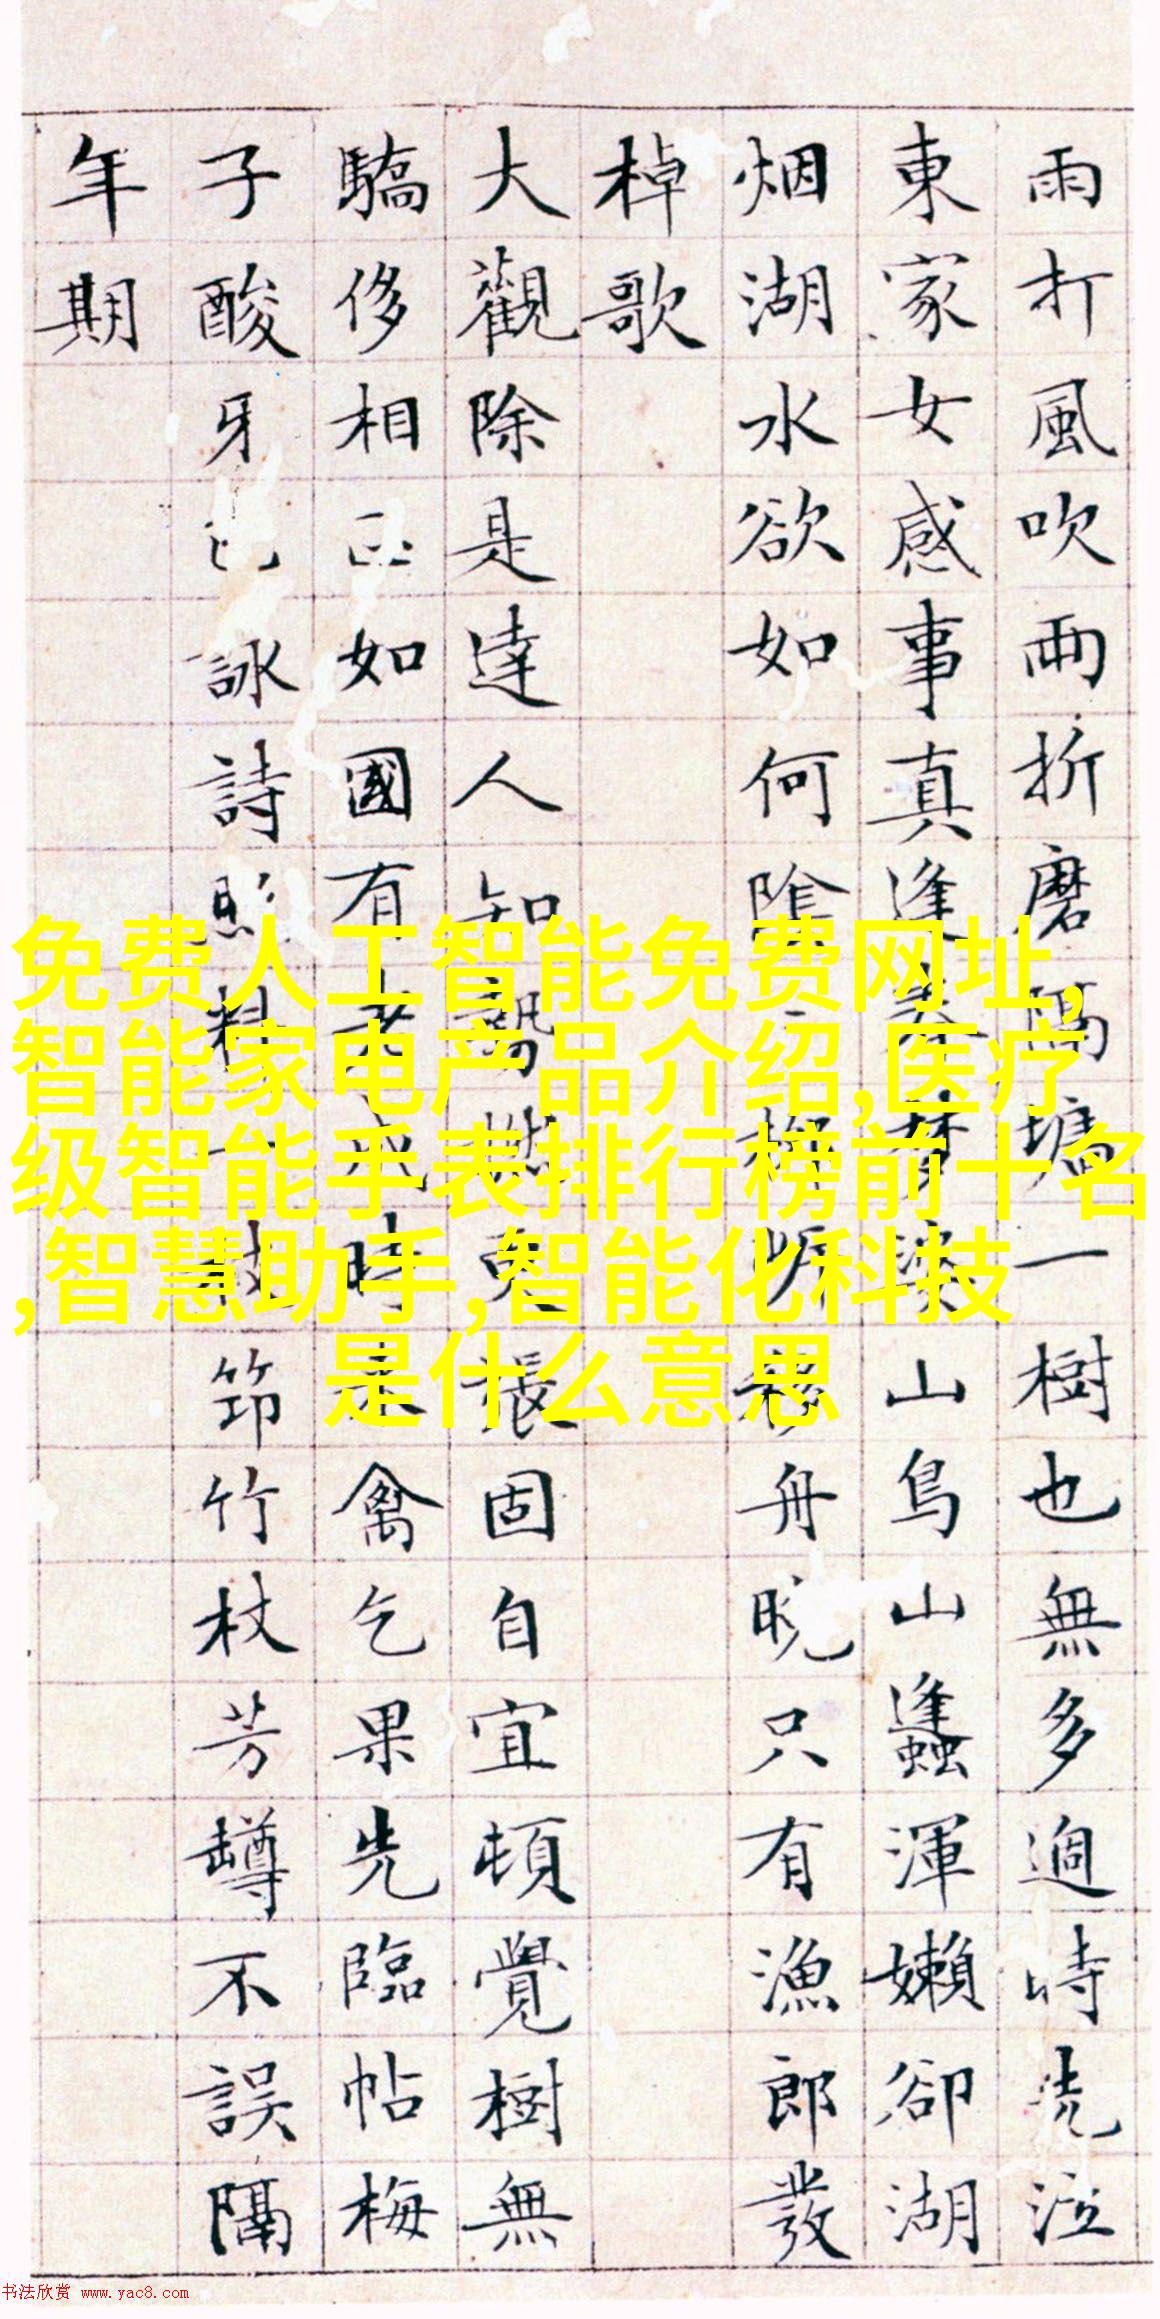 雨打風吹雨折磨隔墉一樹也無多過時洗泣
東家女感事真逢夢深山鳥山蠭渾嬾卻湖
烟湖水欲如何陰柳移舟晚只有漁郎發
棹歌
大觀除是達人知更張固自宜頓覺樹無
驕侈相如國有老成時禽乞果先臨帖梅
子酸牙詠詩照料一枝筇竹杖芳罇不誤隔
年期
免费人工智能免费网址,
智能家电产品介绍,医疗
级智能手表排行榜前十名
,智慧助手,智能化科技
是什么意思
书法欣赏 www.yac8.com